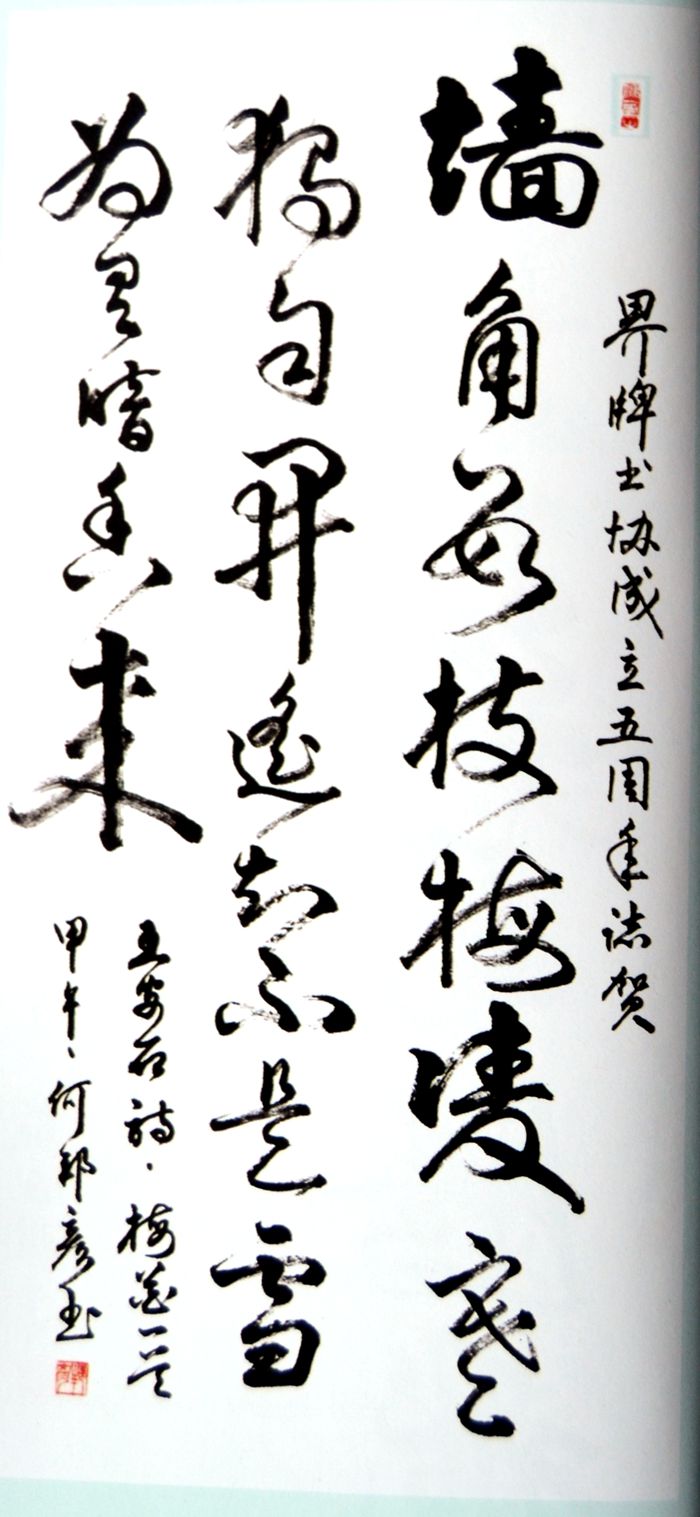 界牌书协成立五周年誌贺
墙角数枝梅凌寒
独自开遥知不是雪
为有暗香来
王安石诗、梅花一首
甲午、何邦彦书